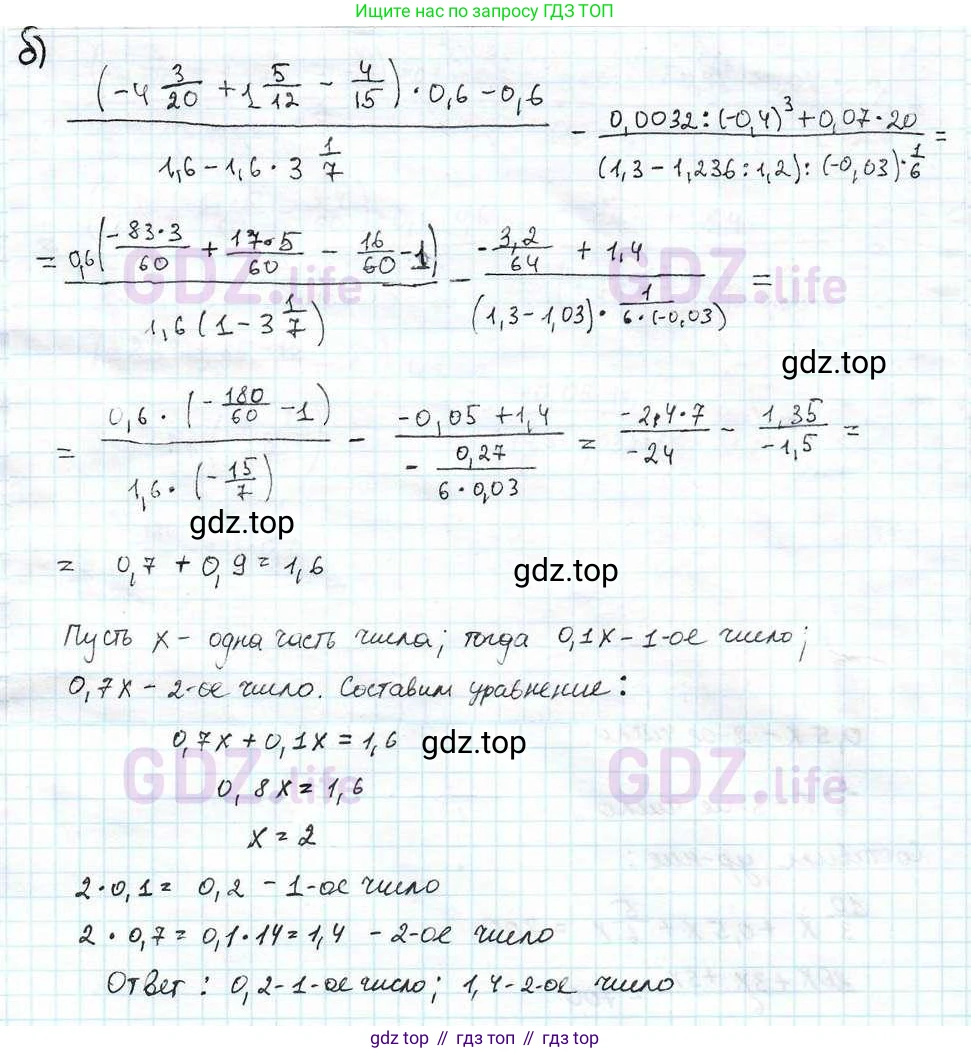 Ищите нас по запросу ГДЗ ТОП
б)
(-4 3/20 + 1 5/12 - 4/15) · 0,6 - 0,6 / 1,6 - 1,6 · 3 1/7 - 0,0032 : (-0,4)³ + 0,07 · 20 / (1,3 - 1,236 : 1,2) : (-0,03) · 1/6 =
= 0,6(-83·3/60 + 17·5/60 - 16/60 - 1) / 1,6(1 - 3 1/7) - -3,2/64 + 1,4 / (1,3 - 1,03) · 1/6·(-0,03) =
GDZ.life GDZ.life
gdz.top
= 0,6 · (-180/60 - 1) / 1,6 · (-15/7) - -0,05 + 1,4 / -0,27/6·0,03 = -2,4·7/-24 - 1,35/-1,5 =
gdz.top
= 0,7 + 0,9 = 1,6
gdz.top
Пусть x - одна часть числа; тогда 0,1x - 1-ое число;
0,7x - 2-ое число. Составим уравнение:
0,7x + 0,1x = 1,6
gdz.top
GDZ.life GDZ.life
0,8x = 1,6
x = 2
2·0,1 = 0,2 - 1-ое число
2 · 0,7 = 0,1·14 = 1,4 - 2-ое число
Ответ: 0,2 - 1-ое число; 1,4 - 2-ое число
gdz top // гдз топ // gdz.top